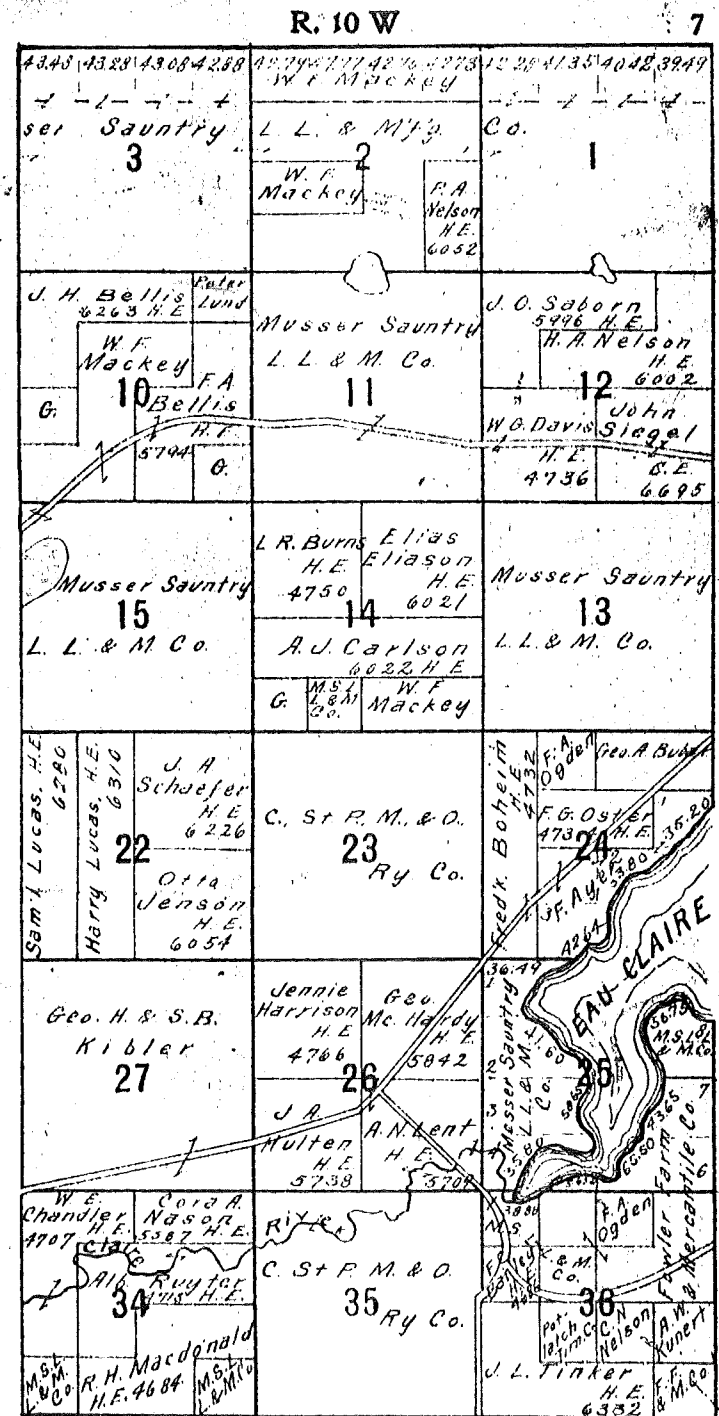 R. 10 W
7
43.43 43.23 43.08 42.88
41.35 40.42 39.49
W. F. Mackey
ser Sauntry
L. L. & M'f'g.
Co.
3
2
1
W. F.
Mackey
P. A.
Nelson
H. E.
6052
J. H. Bellis
6263 H. E.
Peter
Lund
W. F.
Mackey
10
G.
F. A.
Bellis
H. E.
5794
G.
Musser Sauntry
L. L. & M. Co.
11
J. O. Saborn
5996 H. E.
H. A. Nelson
H. E.
6002
12
W. G. Davis
H. E.
4736
John
Siegel
6695
Musser Sauntry
15
L. L. & M. Co.
L. R. Burns
H. E.
4750
Elias
Eliason
H. E.
6021
14
A. J. Carlson
6022 H. E
G.
M. S. L
L & M
Co.
W. F
Mackey
Musser Sauntry
13
L. L. & M. Co.
Sam'l Lucas, H. E.
6280
Harry Lucas, H. E.
6310
J. A
Schaefer
H. E
6226
22
Otto
Jenson
H. E.
6054
C. St P. M. & O.
23
Ry Co.
Fred'k. Boheim
H. E
4732
F. A.
Ogden
F. G. Oster
H. E.
24
J. F. Ayer
35.20
33.80
EAU CLAIRE
Geo. H. & S. B.
Kibler
27
Jennie
Harrison
H. E
4766
Geo.
Mc. Hardy
H. E
5842
26
J A
Hulten
H. E.
5738
A. N. Lent
H. E
5709
36.49
1
2
3
Musser Sauntry
L. L. & M.
Co.
41.60
35.80
25
M. S. L. L
& M. Co.
7
43.65
6
Fowler Farm
& Mercantile Co.
W. E.
Chandler
H. E.
4707
Cora A.
Nason
5387 H. E.
Claire
River
Alb. Ruyter
H. E.
34
M. S. L
L. & M.
Co.
R. H. Macdonald
H. E. 4684
M. S. L
L. & M. Co.
C. St P. M. & O.
35
Ry Co.
M. S.
F. A.
Ogden
& M.
Co.
36
Pot-
latch
Tim. Co.
C. N
Nelson
A. W.
Kunert
J. L. Tinker
H. E.
6332
F. F.
& M. Co